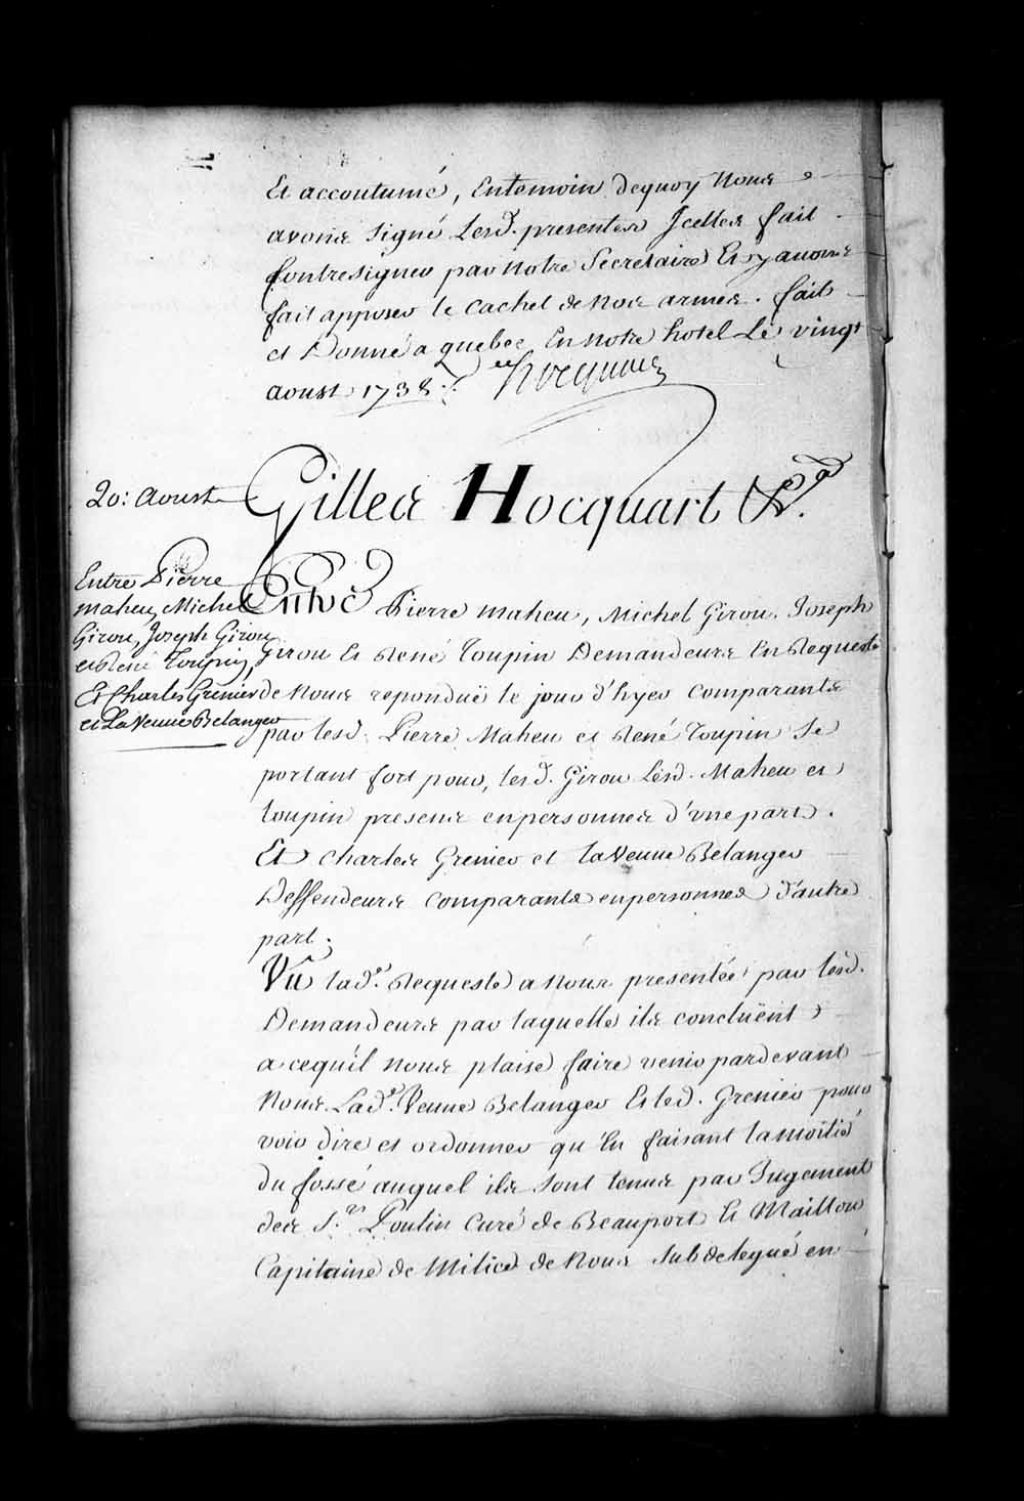 Et accoutumé, Entemoin dequoy Nous
avons signé Lesd. presentes Jcelles fait
Contresigner par Notre Secretaire Et y avons
fait apposer le Cachet de Nos armes. fait
et Donné a quebec En Notre hotel Le vingt
aoust 1738 ./. Hocquart
20: Aoust
Gilles Hocquart &ca.
Entre Pierre
maheu, Michel
Girou, Joseph Girou
et René Toupin,
Et Charles Grenier
et La Veuve Belanger
Entre Pierre maheu, Michel Girou, Joseph
Girou Et René Toupin Demandeurs En Requeste
de Nous reponduë le jour d'hyer comparants
par lesd. Pierre Maheu et René Toupin Se
portant fort pour, lesd. Girou Lesd. Maheu et
toupin presens enpersonnes d'vne part.
Et Charles Grenier et la Veuve Belanger
Deffendeurs Comparants enpersonnes d'autre
part;
Vû lade. Requeste a Nous presentée par lesd.
Demandeurs par laquelle ils concluënt
a cequ'il nous plaise faire venir pardevant
Nous Lade. Veuve Belanger Et led. Grenier pour
voir dire et ordonner qu'En faisant la moitié
du fossé auquel ils sont tenus par Jugement
des Srs. Poulin Curé de Beauport Et Maillou
Capitaine de Milice de Nous Subdelegué en